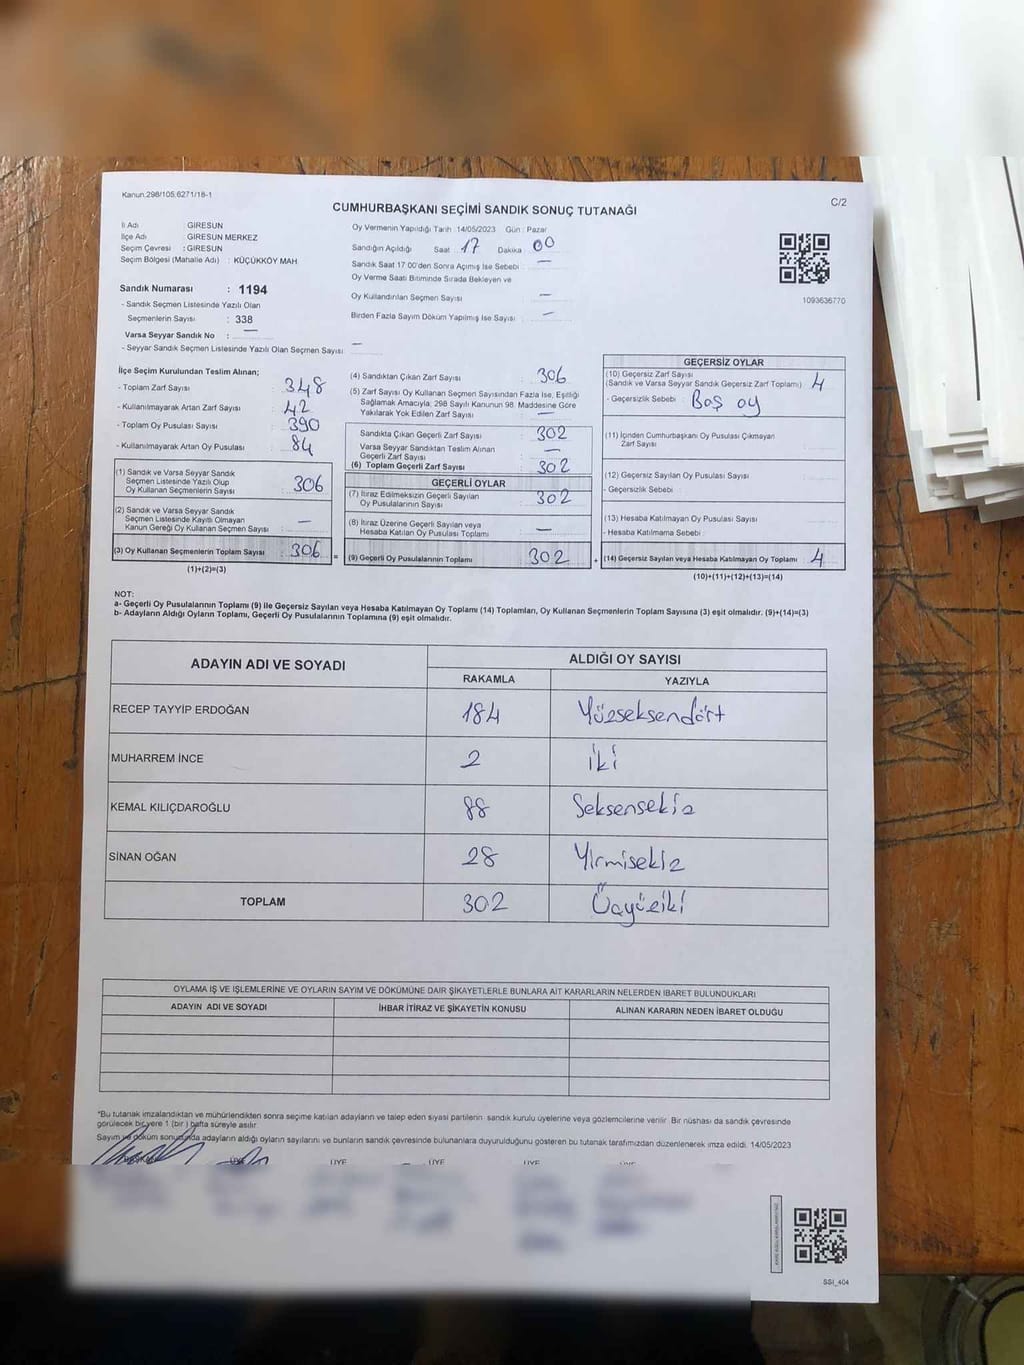 Kanun.298/105,6271/18-1
C/2
CUMHURBAŞKANI SEÇİMİ SANDIK SONUÇ TUTANAĞI
İl Adı GİRESUN
İlçe Adı GİRESUN MERKEZ
Seçim Çevresi : GİRESUN
Seçim Bölgesi (Mahalle Adı) : KÜÇÜKKÖY MAH.
Sandık Numarası : 1194
- Sandık Seçmen Listesinde Yazılı Olan
Seçmenlerin Sayısı : 338
Varsa Seyyar Sandık No : —
- Seyyar Sandık Seçmen Listesinde Yazılı Olan Seçmen Sayısı: —
Oy Vermenin Yapıldığı Tarih :14/05/2023 Gün : Pazar
Sandığın Açıldığı Saat 17 Dakika 00
Sandık Saat 17:00'den Sonra Açımış İse Sebebi : —
Oy Verme Saati Bitiminde Sırada Bekleyen ve
Oy Kullandırılan Seçmen Sayısı : —
Birden Fazla Sayım Döküm Yapılmış İse Sayısı : —
1093636770
İlçe Seçim Kurulundan Teslim Alınan;
- Toplam Zarf Sayısı : 348
- Kullanılmayarak Artan Zarf Sayısı : 42
- Toplam Oy Pusulası Sayısı : 390
- Kullanılmayarak Artan Oy Pusulası : 84
(1) Sandık ve Varsa Seyyar Sandık
Seçmen Listesinde Yazılı Olup
Oy Kullanan Seçmenlerin Sayısı : 306
(2) Sandık ve Varsa Seyyar Sandık
Seçmen Listesinde Kayıtlı Olmayan
Kanun Gereği Oy Kullanan Seçmen Sayısı : —
(3) Oy Kullanan Seçmenlerin Toplam Sayısı : 306
(1)+(2)=(3)
(4) Sandıktan Çıkan Zarf Sayısı : 306
(5) Zarf Sayısı Oy Kullanan Seçmen Sayısından Fazla İse, Eşitliği
Sağlamak Amacıyla; 298 Sayılı Kanunun 98. Maddesine Göre
Yakılarak Yok Edilen Zarf Sayısı : —
Sandıkta Çıkan Geçerli Zarf Sayısı : 302
Varsa Seyyar Sandıktan Teslim Alınan
Geçerli Zarf Sayısı : —
(6) Toplam Geçerli Zarf Sayısı : 302
GEÇERLİ OYLAR
(7) İtiraz Edilmeksizin Geçerli Sayılan
Oy Pusulalarının Sayısı : 302
(8) İtiraz Üzerine Geçerli Sayılan veya
Hesaba Katılan Oy Pusulası Toplamı : —
= (9) Geçerli Oy Pusulalarının Toplamı : 302
GEÇERSİZ OYLAR
(10) Geçersiz Zarf Sayısı
(Sandık ve Varsa Seyyar Sandık Geçersiz Zarf Toplamı) : 4
- Geçersizlik Sebebi : Boş oy
(11) İçinden Cumhurbaşkanı Oy Pusulası Çıkmayan
Zarf Sayısı :
(12) Geçersiz Sayılan Oy Pusulası Sayısı :
- Geçersizlik Sebebi :
(13) Hesaba Katılmayan Oy Pusulası Sayısı :
- Hesaba Katılmama Sebebi :
+ (14) Geçersiz Sayılan veya Hesaba Katılmayan Oy Toplamı : 4
(10)+(11)+(12)+(13)=(14)
NOT:
a- Geçerli Oy Pusulalarının Toplamı (9) ile Geçersiz Sayılan veya Hesaba Katılmayan Oy Toplamı (14) Toplamları, Oy Kullanan Seçmenlerin Toplam Sayısına (3) eşit olmalıdır. (9)+(14)=(3)
b- Adayların Aldığı Oyların Toplamı, Geçerli Oy Pusulalarının Toplamına (9) eşit olmalıdır.
ADAYIN ADI VE SOYADI
ALDIĞI OY SAYISI
RAKAMLA YAZIYLA
RECEP TAYYİP ERDOĞAN 184 Yüzseksendört
MUHARREM İNCE 2 İki
KEMAL KILIÇDAROĞLU 88 Seksensekiz
SİNAN OĞAN 28 Yirmisekiz
TOPLAM 302 Üçyüziki
OYLAMA İŞ VE İŞLEMLERİNE VE OYLARIN SAYIM VE DÖKÜMÜNE DAİR ŞİKAYETLERLE BUNLARA AİT KARARLARIN NELERDEN İBARET BULUNDUKLARI
ADAYIN ADI VE SOYADI İHBAR İTİRAZ VE ŞİKAYETİN KONUSU ALINAN KARARIN NEDEN İBARET OLDUĞU
*Bu tutanak imzalandıktan ve mühürlendikten sonra seçime katılan adayların ve talep eden siyasi partilerin sandık kurulu üyelerine veya gözlemcilerine verilir. Bir nüshası da sandık çevresinde
görülecek bir yere 1 (bir ) hafta süreyle asılır.
Sayım ve döküm sonucunda adayların aldığı oyların sayılarını ve bunların sandık çevresinde bulunanlara duyurulduğunu gösteren bu tutanak tarafımızdan düzenlenerek imza edildi. 14/05/2023
ÜYE ÜYE ÜYE ÜYE ÜYE
SSI_404